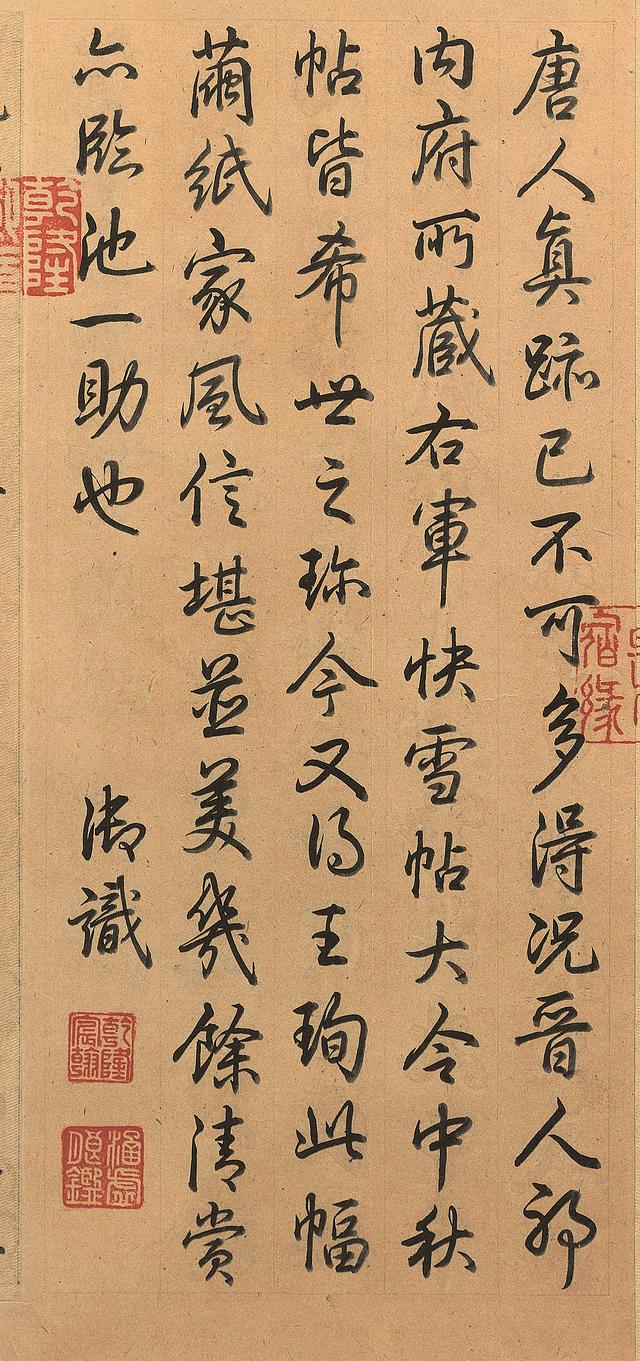 唐人真跡已不可多得況晉人耶
內府所藏右軍快雪帖大令中秋
帖皆希世之珎今又得王珣此幅
繭紙家風信堪並美幾餘清賞
亦臨池一助也　御識
乾隆宸翰
乾隆